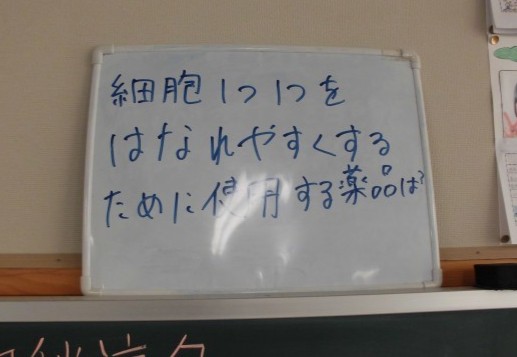 細胞1つ1つを
はなれやすくする
ために使用する薬品は?